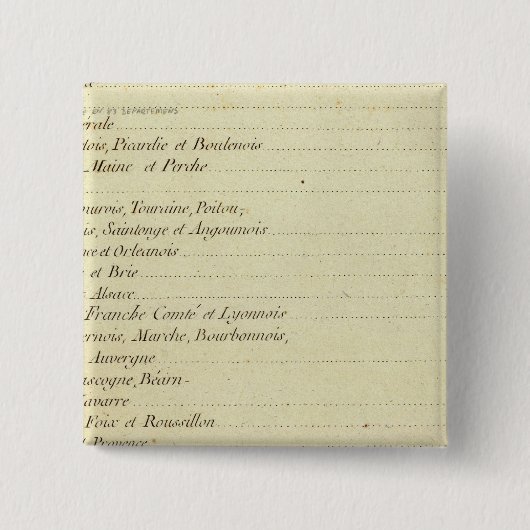 EN 83 DEPARTEMENS
érale
dois, Picardie et Boulenois
Maine et Perche
umurois, Touraine, Poitou,
is, Saintonge et Angoumois
nce et Orleanois
et Brie
Alsace
Franche Comté et Lyonnois
ernois, Marche, Bourbonnois,
Auvergne
ascogne, Béarn
Navarre
Foix et Roussillon
Provence